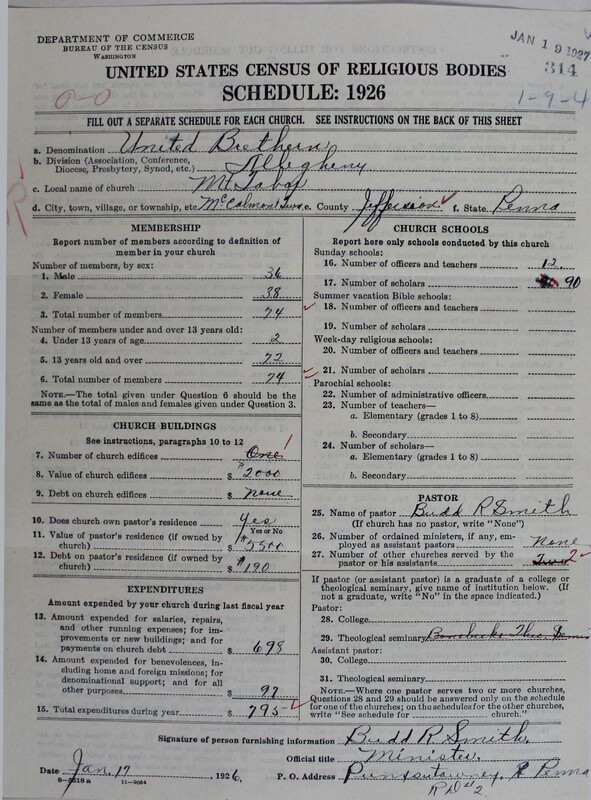 DEPARTMENT OF COMMERCE
BUREAU OF THE CENSUS
WASHINGTON
JAN 19 1927
314
1-9-4
0-0
UNITED STATES CENSUS OF RELIGIOUS BODIES
SCHEDULE: 1926
FILL OUT A SEPARATE SCHEDULE FOR EACH CHURCH. SEE INSTRUCTIONS ON THE BACK OF THIS SHEET
a. Denomination United Brethern
b. Division (Association, Conference, Diocese, Presbytery, Synod, etc.) Allegheny
c. Local name of church Mt Tabor
d. City, town, village, or township, etc. McCalmont Twn. e. County Jefferson f. State Penna
R
MEMBERSHIP
Report number of members according to definition of
member in your church
Number of members, by sex:
1. Male 36
2. Female 38
3. Total number of members 74
Number of members under and over 13 years old:
4. Under 13 years of age 2
5. 13 years old and over 72
6. Total number of members 74
NOTE.—The total given under Question 6 should be the
same as the total of males and females given under Question 3.
CHURCH BUILDINGS
See instructions, paragraphs 10 to 12
7. Number of church edifices One 1
8. Value of church edifices $ 2000
9. Debt on church edifices $ none
10. Does church own pastor's residence Yes
Yes or No
11. Value of pastor's residence (if owned by
church) $ 5500
12. Debt on pastor's residence (if owned by
church) $ 190
EXPENDITURES
Amount expended by your church during last fiscal year
13. Amount expended for salaries, repairs,
and other running expenses; for im-
provements or new buildings; and for
payments on church debt $ 698
14. Amount expended for benevolences, in-
cluding home and foreign missions; for
denominational support; and for all
other purposes $ 97
15. Total expenditures during year $ 795
CHURCH SCHOOLS
Report here only schools conducted by this church
Sunday schools:
16. Number of officers and teachers 12
17. Number of scholars 90
Summer vacation Bible schools:
18. Number of officers and teachers
19. Number of scholars
Week-day religious schools:
20. Number of officers and teachers
21. Number of scholars
Parochial schools:
22. Number of administrative officers
23. Number of teachers—
a. Elementary (grades 1 to 8)
b. Secondary
24. Number of scholars—
a. Elementary (grades 1 to 8)
b. Secondary
PASTOR
25. Name of pastor Budd R Smith
(If church has no pastor, write "None")
26. Number of ordained ministers, if any, em-
ployed as assistant pastors None
27. Number of other churches served by the
pastor or his assistants Two 2
If pastor (or assistant pastor) is a graduate of a college or
theological seminary, give name of institution below. (If
not a graduate, write "No" in the space indicated.)
Pastor:
28. College
29. Theological seminary Bonebrake Theo Semi
Assistant pastor:
30. College
31. Theological seminary
NOTE.—Where one pastor serves two or more churches,
Questions 28 and 29 should be answered only on the schedule
for one of the churches; on the schedules for the other churches,
write "See schedule for church."
Signature of person furnishing information Budd R Smith.
Official title Minister.
Date Jan. 17, 1926. P. O. Address Punxsutawney, Penna
R D #2
8-2618 a 11-9024